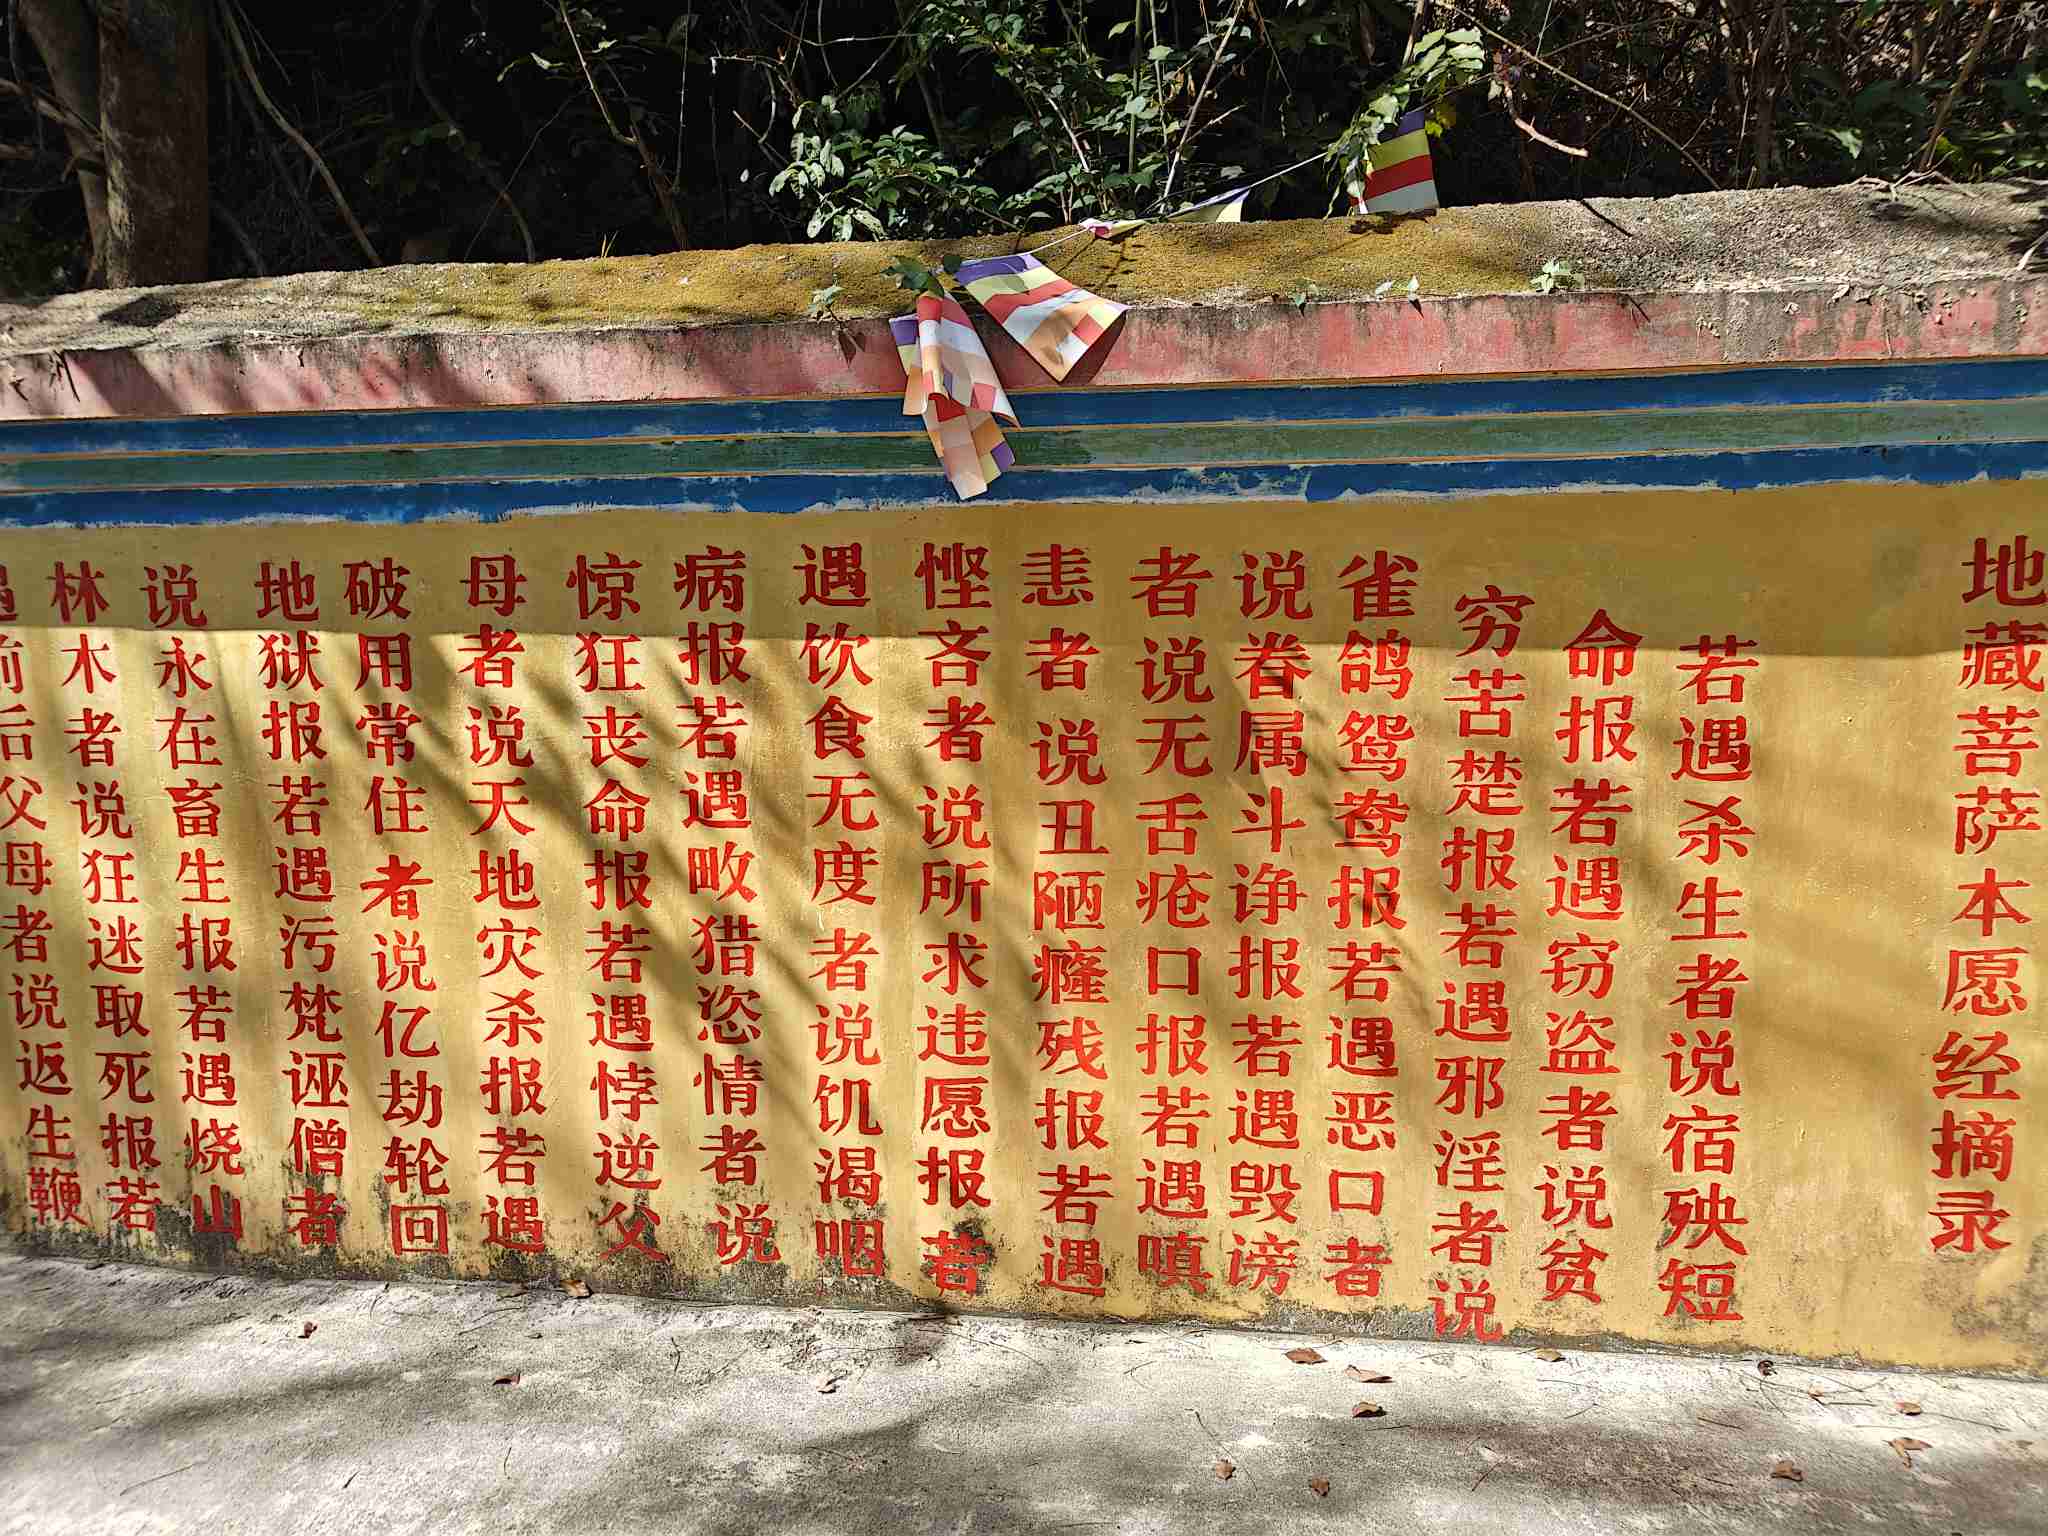 地藏菩萨本愿经摘录
若遇杀生者说宿殃短
命报若遇窃盗者说贫
穷苦楚报若遇邪淫者说
雀鸽鸳鸯报若遇恶口者
说眷属斗诤报若遇毁谤
者说无舌疮口报若遇嗔
恚者说丑陋癃残报若遇
悭吝者说所求违愿报若
遇饮食无度者说饥渴咽
病报若遇畋猎恣情者说
惊狂丧命报若遇悖逆父
母者说天地灾杀报若遇
破用常住者说亿劫轮回
地狱报若遇污梵诬僧者
说永在畜生报若遇烧山
林木者说狂迷取死报若
遇前后父母者说返生鞭